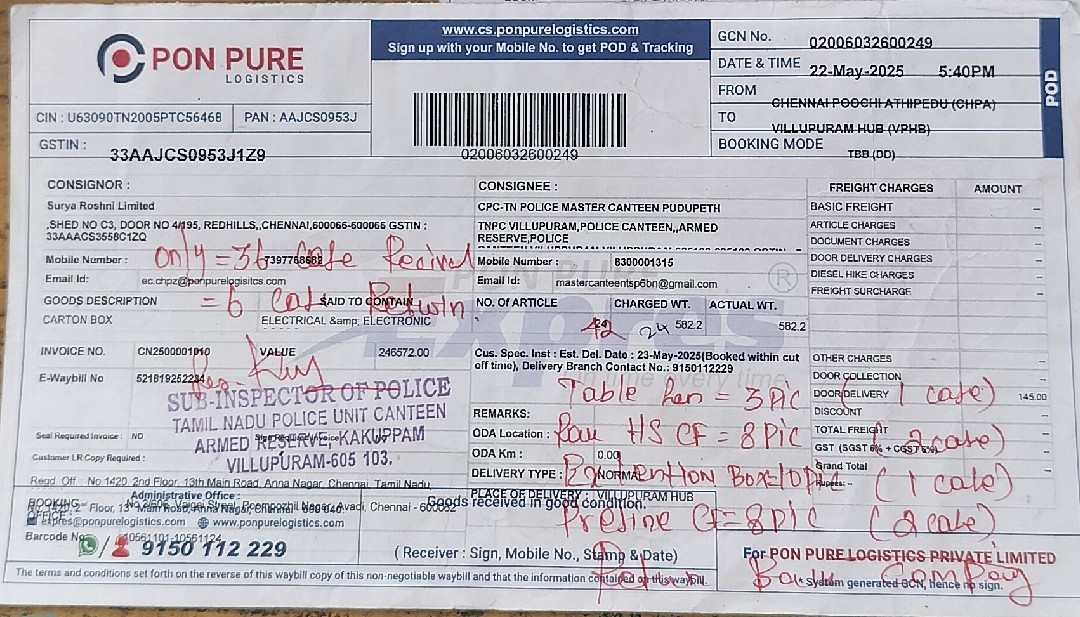 PON PURE
LOGISTICS
www.cs.ponpurelogistics.com
Sign up with your Mobile No. to get POD & Tracking
GCN No. 02006032600249
DATE & TIME 22-May-2025 5:40PM
FROM CHENNAI POOCHI ATHIPEDU (CHPA)
TO VILLUPURAM HUB (VPHB)
BOOKING MODE TBB (DD)
POD
CIN : U63090TN2005PTC56468 PAN : AAJCS0953J
GSTIN : 33AAJCS0953J1Z9
02006032600249
CONSIGNOR :
Surya Roshni Limited
,SHED NO C3, DOOR NO 4/195, REDHILLS,,CHENNAI,600066-600066 GSTIN :
33AAACS3558C1ZQ
Mobile Number : 7397768682
only = 36 case
Email Id: ec.chpz@ponpurelogisitcs.com
= 6
GOODS DESCRIPTION SAID TO CONTAIN
CARTON BOX ELECTRICAL &amp; ELECTRONIC
CONSIGNEE :
CPC-TN POLICE MASTER CANTEEN PUDUPETH
TNPC VILLUPURAM,POLICE CANTEEN,,ARMED
RESERVE,POLICE
Mobile Number : 8300001315
Email Id: mastercanteentsp6bn@gmail.com
PON PURE
Expres
®
NO. OF ARTICLE CHARGED WT. ACTUAL WT.
42 582.2 582.2
FREIGHT CHARGES AMOUNT
BASIC FREIGHT –
ARTICLE CHARGES –
DOCUMENT CHARGES –
DOOR DELIVERY CHARGES –
DIESEL HIKE CHARGES –
FREIGHT SURCHARGE –
OTHER CHARGES –
DOOR COLLECTION –
DOOR DELIVERY 145.00
DISCOUNT –
TOTAL FREIGHT
GST (SGST 6% + CGST 6%)
Grand Total
Rupees: –
INVOICE NO. CN2500001010 VALUE 246572.00
E-Waybill No 521819252234
SUB-INSPECTOR OF POLICE
TAMIL NADU POLICE UNIT CANTEEN
ARMED RESERVE, KAKUPPAM
VILLUPURAM-605 103.
Seal Required Invoice : NO
Customer LR Copy Required :
Cus. Spec. Inst : Est. Del. Date : 23-May-2025(Booked within cut
off time), Delivery Branch Contact No.: 9150112229
on time every time
REMARKS:
ODA Location :
ODA Km : 0.00
DELIVERY TYPE : NORMAL
PLACE OF DELIVERY : VILLUPURAM HUB
Table = 3 Pic ( 1 case)
HS CF = 8 Pic ( 2 case)
Box = 10 Pic ( 1 case)
CF = 8 Pic ( 2 case)
Regd. Off : No 1420, 2nd Floor, 13th Main Road, Anna Nagar, Chennai, Tamil Nadu,
Administrative Office :
expres@ponpurelogistics.com www.ponpurelogistics.com
Barcode No 10561101-10561124
9150 112 229
Goods received in good condition.
( Receiver : Sign, Mobile No., Stamp & Date)
For PON PURE LOGISTICS PRIVATE LIMITED
* System generated GCN, hence no sign.
The terms and conditions set forth on the reverse of this waybill copy of this non-negotiable waybill and that the information contained on this waybill.